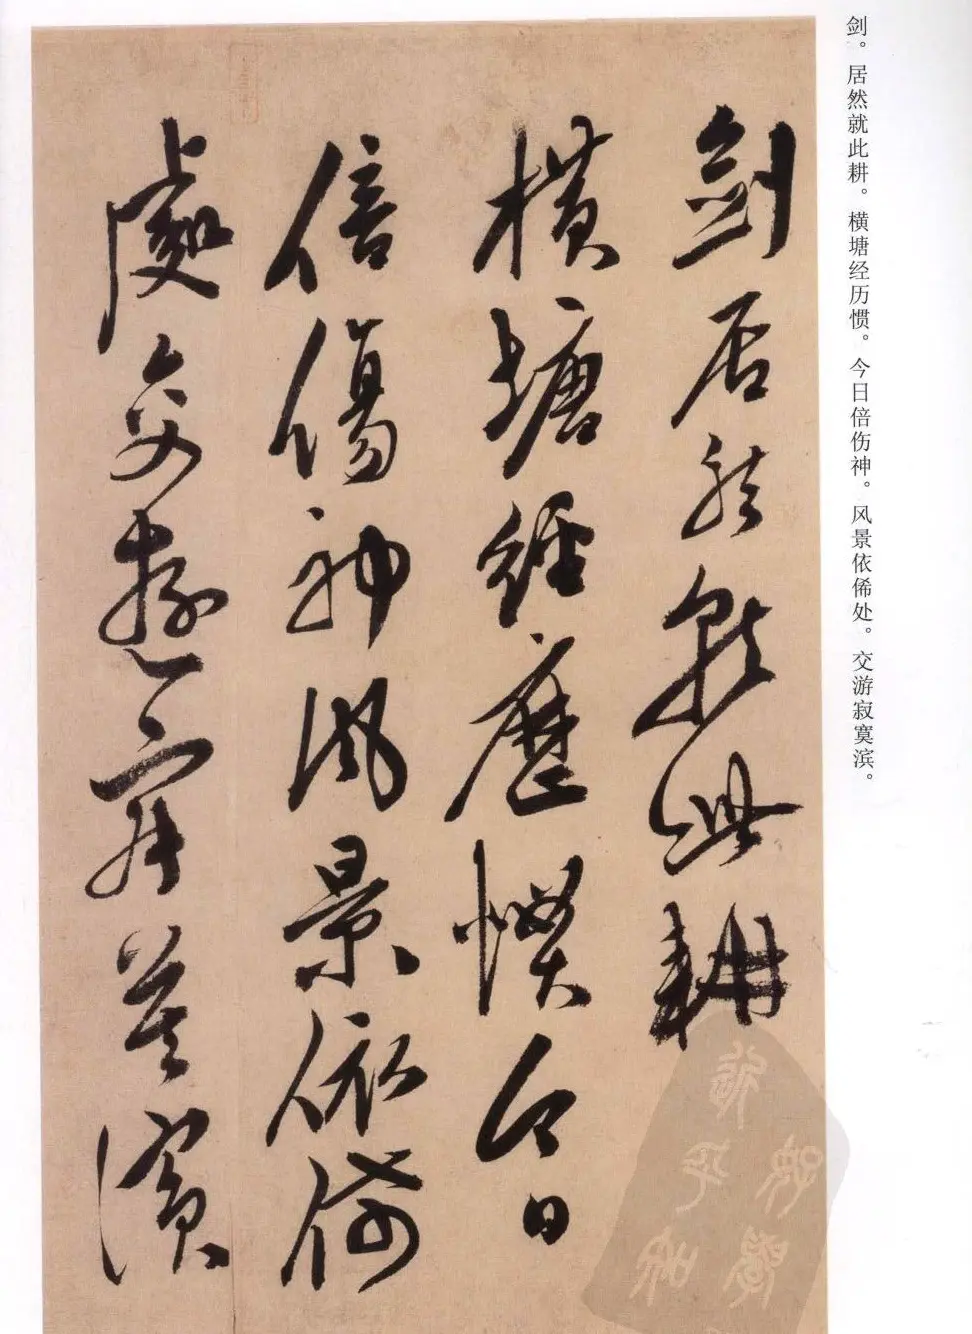 剑。居然就此耕。横塘经历惯。今日倍伤神。风景依俙处。交游寂寞滨。
劍居然就此耕
橫塘經歷慣今日
倍傷神風景依俙
處交遊寂寞濱